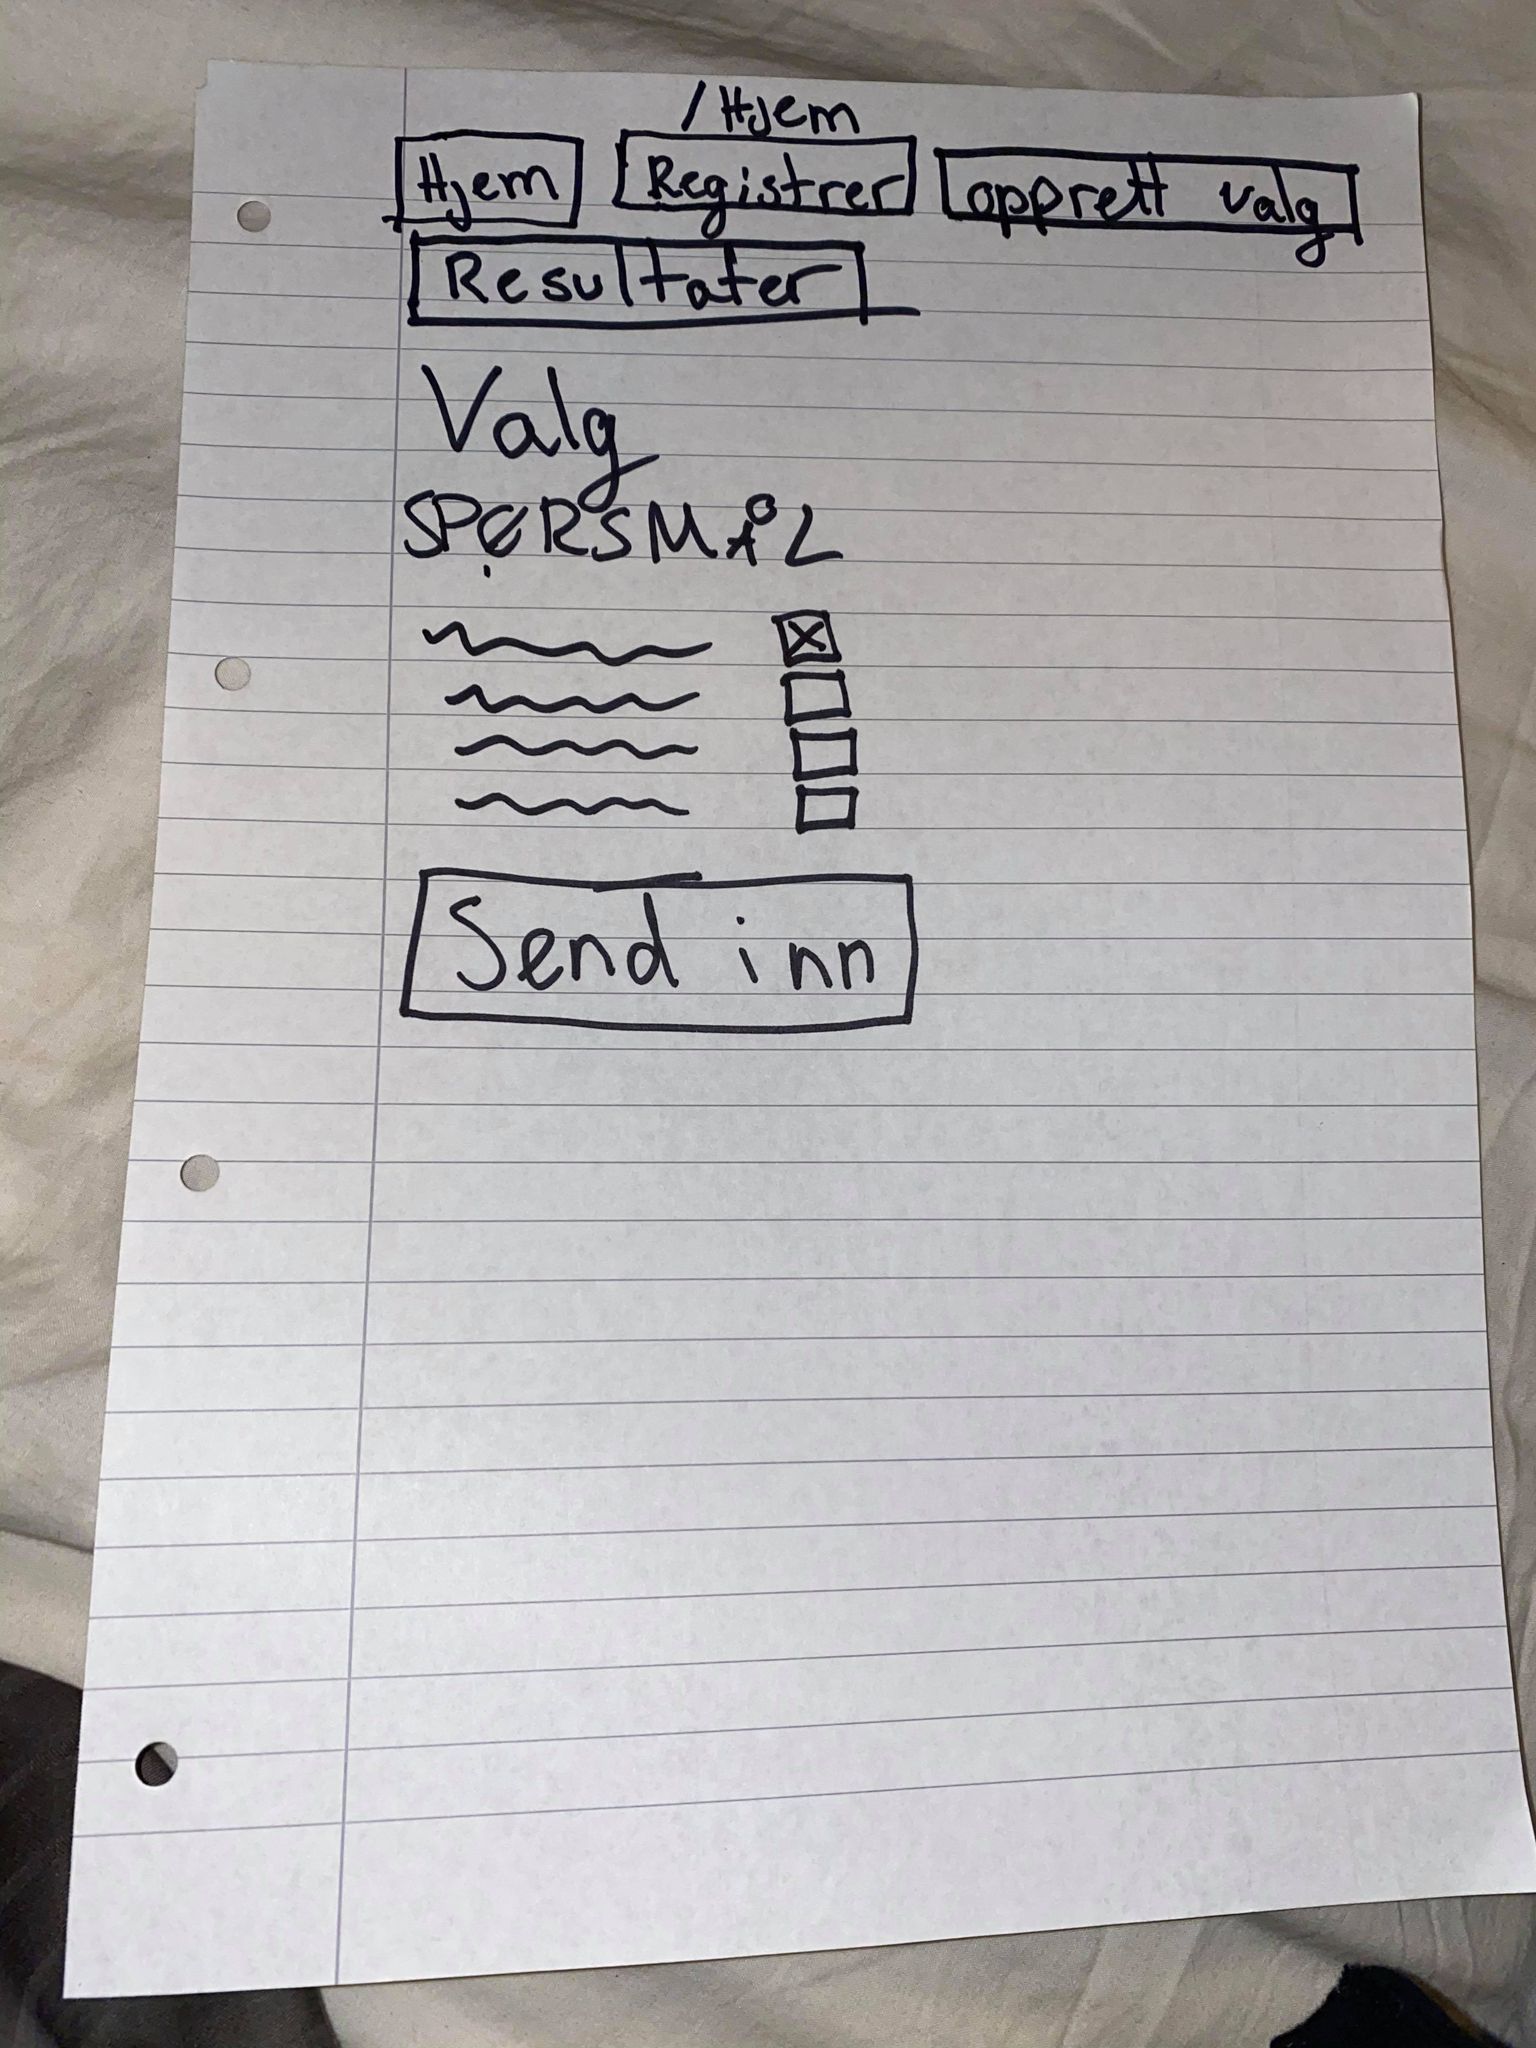 /Hjem
Hjem Registrer opprett valg
Resultater
Valg
SPØRSMÅL
Send inn